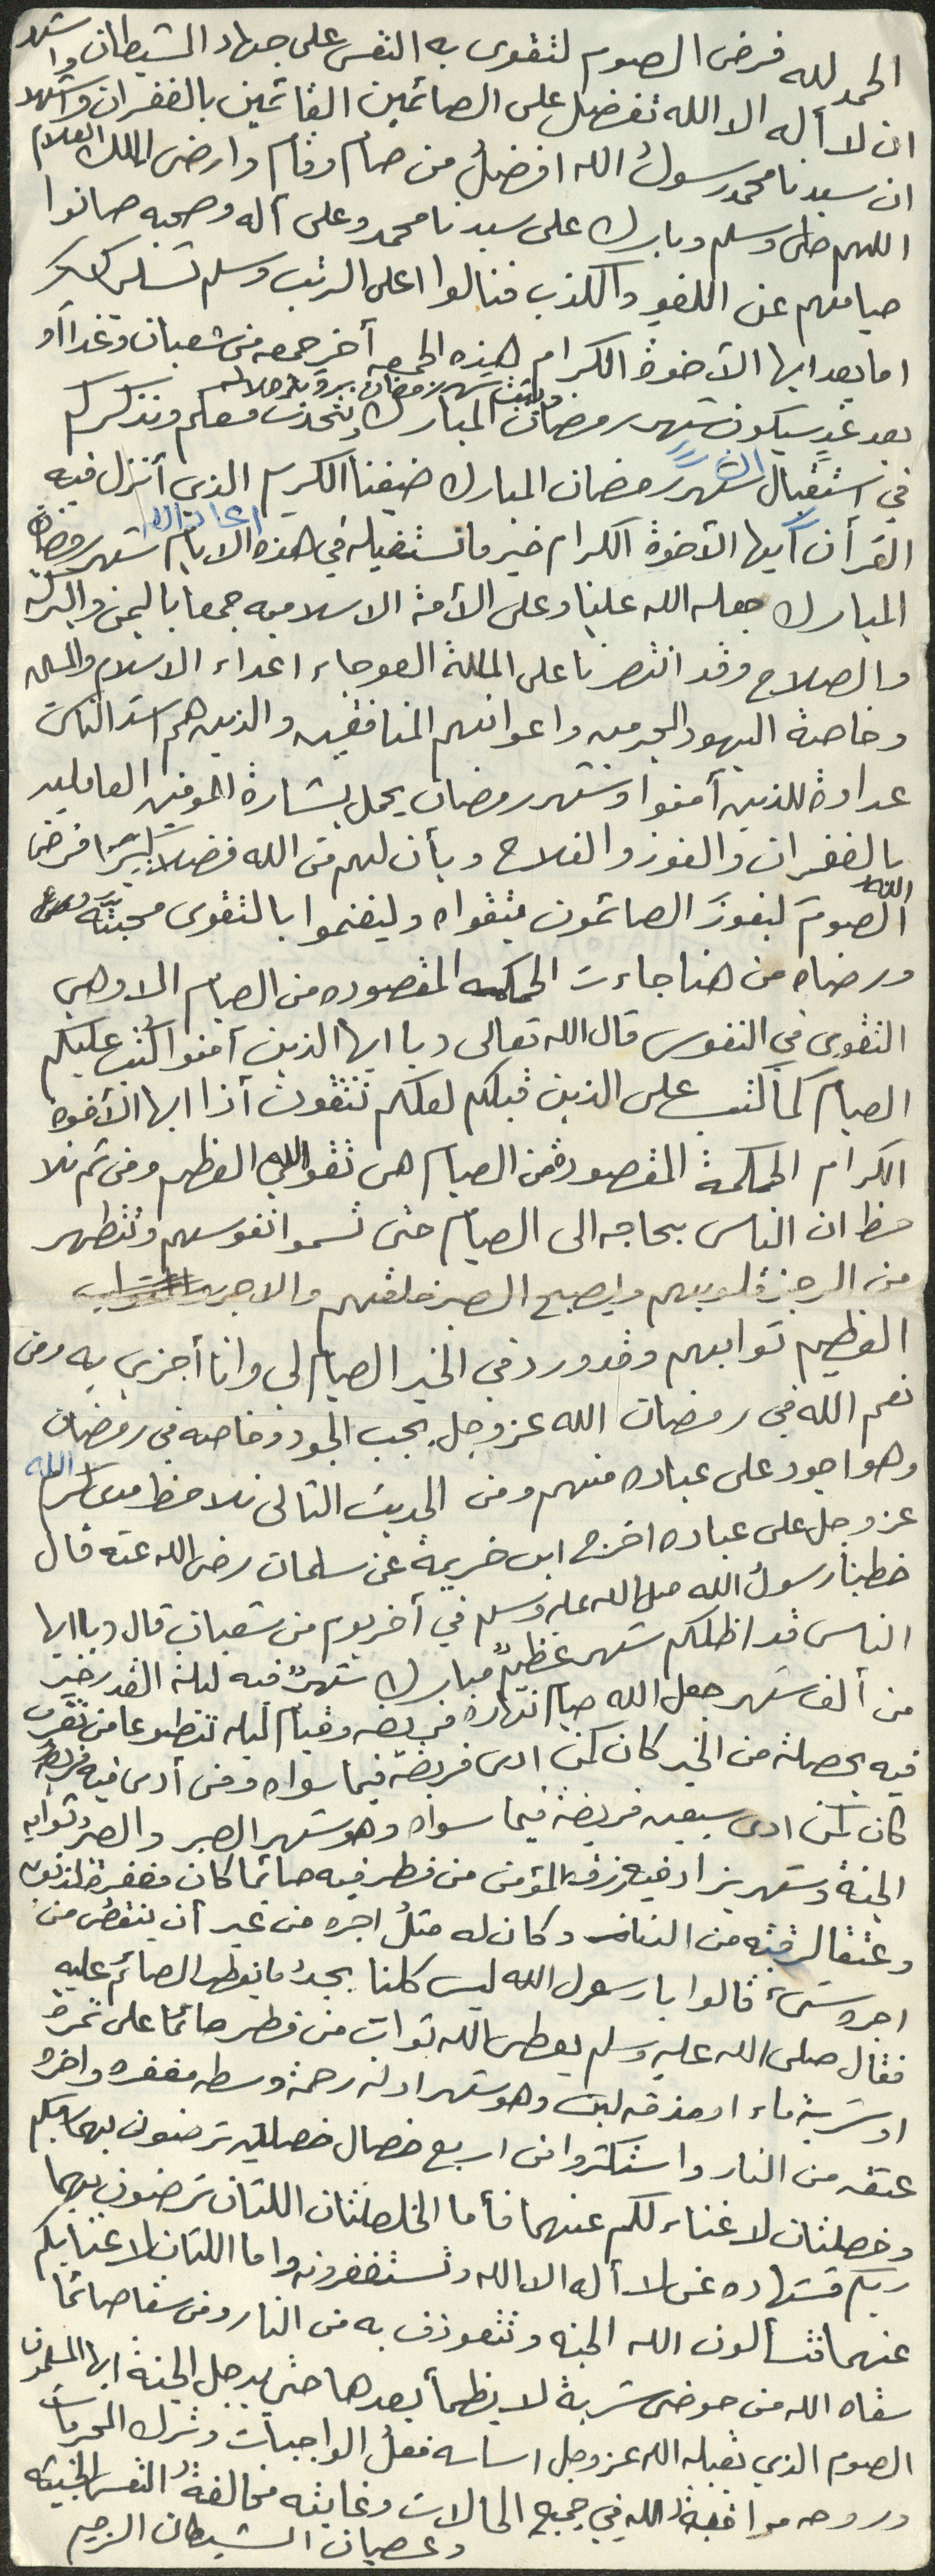 الحمد لله فرض الصوم لتقوى به النفس على جهاد الشيطان واشهد
ان لا أله الا الله تفضل على الصائمين القائمين بالغفران واشهد
ان سيدنا محمد رسولُ الله افضلُ من صام وقام وارضى الملك العلام
اللهم صلى وسلم وبارك على سيدنا محمد وعلى آله وصحبه صانوا
صيامهم عن اللغو والكذب فنالوا اعلى الرتب وسلم تسليما كثير
اما بعد ايها الأخوة الكرام هذه الجمعه أخر جمعه من شعبان وغداً او
بعد غدٍ سيكون شهر رمضان المبارك ونتحدث معكم ونذكركم
في استقبال شهر رمضان المبارك ضيفنا الكريم الذي أنزل فيه
القرآن أيها الأخوة الكرام خير ما نستقبله في هذه الايام شهر رمضان
المبارك جعله الله علينا وعلى الأمة الاسلاميه جمعا باليمن والبركه
والصلاح وقد انتصرنا على الملة العوجاء اعداء الاسلام والمسلمين
وخاصة اليهود المجرمين واعوانهم المنافقين والذين هم اشد الناس
عداوة للذين آمنوا وشهر رمضان يحمل بشارة المؤمنين العاملين
بالغفران والفوز والفلاح وبأن لهم من الله فضلا كبيرا فرض
الله الصومَ ليفوزَ الصائمون بتقواه وليغنموا بالتقوى محبته
ورضاه من هنا جاءت الحكمه المقصوده من الصيام الا وهي
التقوى في النفوس قال الله تعالى ديا ايها الذين آمنوا كُتب عليكم
الصيام كما كتب على الذين قبلكم لعلكم تتقون أذا ايها الأخوه
الكرام الحكمة المقصوده من الصيام هي تقوى الله العظيم ومن ثم نلا
حظ ان الناس بحاجه الى الصيام حتى تسموا نفوسهم وتتطهر
من الرجز قلوبهم وايصبح الصبر خلقهم والاجر
العظيم ثوابهم وقد ورد في الخبر الصيام لي وانا أجزي به ومن
نعم الله في رمضان الله عز وجل يحب الجود وخاصه في رمضان
وهو اجود على عباده منهم ومن الحديث التالى نلاحظ مدى كرم الله
عز وجل على عباده اخرج ابن خزيمة عن سلمان رضى الله عنه قال
خطبنا رسولُ الله صلى الله عليه وسلم في أخر يوم من شعبان قال ديا ايها
الناس قد اظلكم شهر عظيمٌ مبارك شهرٌ فيه ليلة القدر خير
من ألف شهر جعل الله صيام نهاره فريضه وقيام ليله تطوعا من تقرب
فيه بخصلة من الخير كان كمن ادى فريضة فيما سواه ومن أدى فيه فريضة
كان كمن ادى سبعين فريضة فيما سواه وهو شهر الصبر والصبر ثوابه
الجنة وشهر يزاد فيه رزق المؤمن من فطر فيه صائما كان مغفرة لذنوبه
وعتقا لرقبته من النار وكان له مثلُ اجره من غير أن ينقصُ من
اجره شىء قالوا يا رسول الله ليس كلنا يجدُ ما يفطر الصائم عليه
فقال صلى الله عليه وسلم يعطى الله ثواب من فطر صائما على تمرة
او شربة ماء او مذقه لبن وهو شهر اوله رحمة وسطه مغفره واخره
عتقه من النار واستكثروا من اربع خصال خصلتين ترضون بهما ربكم
وخصلتان لا غناء لكم عنهما فأما الخصلتان اللتان ترضون بهما
ربكم فشهاده عن لا أله الا الله وتستغفرونه واما اللتان لا غنا بكم
عنهما فتسألون الله الجنه وتتعوذون به من النار ومن سقا صائما
سقاه الله من حوضى شربة لا يظمأ بعدها حتى يدخل الجنة ايها المسلمون
الصوم الذي يقبله الله عز وجل اساسه فعلُ الواجبات وترك المحرمات
وروحه موافقة الله في جميع الحالات وغايته مخالفةُ النفس الخبيثه
وعصيان الشيطان الرجيم